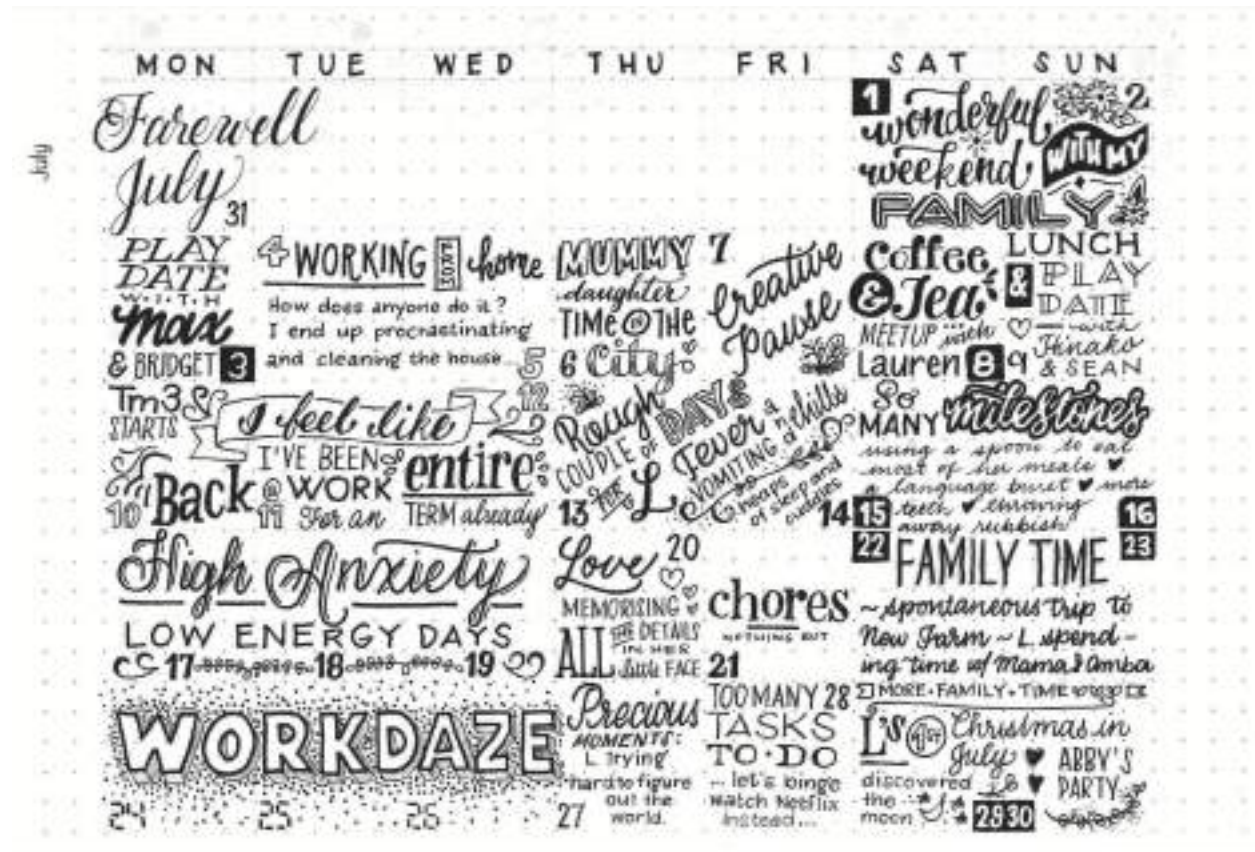 July
MON TUE WED THU FRI SAT SUN
Farewell
July
31
1 wonderful
weekend
2
WITH MY
FAMILY
PLAY
DATE
WITH
max
& BRIDGET 3
4 WORKING FROM home
How does anyone do it?
I end up procrastinating
and cleaning the house... 5
MUMMY
daughter
TIME @ THE
6 City
7
Creative
Pause
Coffee
& Tea
MEETUP with
Lauren 8
LUNCH
& PLAY
DATE
with
Hinako
9 & SEAN
Tm3
STARTS
10
I feel like
12
I'VE BEEN
Back @ WORK
11 For an
entire
TERM already
Rough
COUPLE OF DAYS
FOR L
13
Fever
VOMITING & chills
heaps
of sleep and
cuddles
14
So
MANY milestones
using a spoon to eat
most of her meals ♥
a language burst ♥ more
teeth ♥ throwing
away rubbish
15
16
High Anxiety
LOW ENERGY DAYS
17 18 19
Love 20
MEMORISING
ALL THE DETAILS
IN HER
little FACE
chores
NOTHING BUT
21
22
23
FAMILY TIME
~ spontaneous trip to
New Farm ~ L spend-
ing time w/ Mama & Amba
MORE FAMILY TIME
WORKDAZE
24 25 26
Precious
MOMENTS:
L Trying
hard to figure
out the
world.
27
TOO MANY 28
TASKS
TO DO
... let's binge
watch Neeflix
instead...
L'S 1ST Christmas in
July ♥
discovered
the
moon
29
ABBY'S
PARTY
30